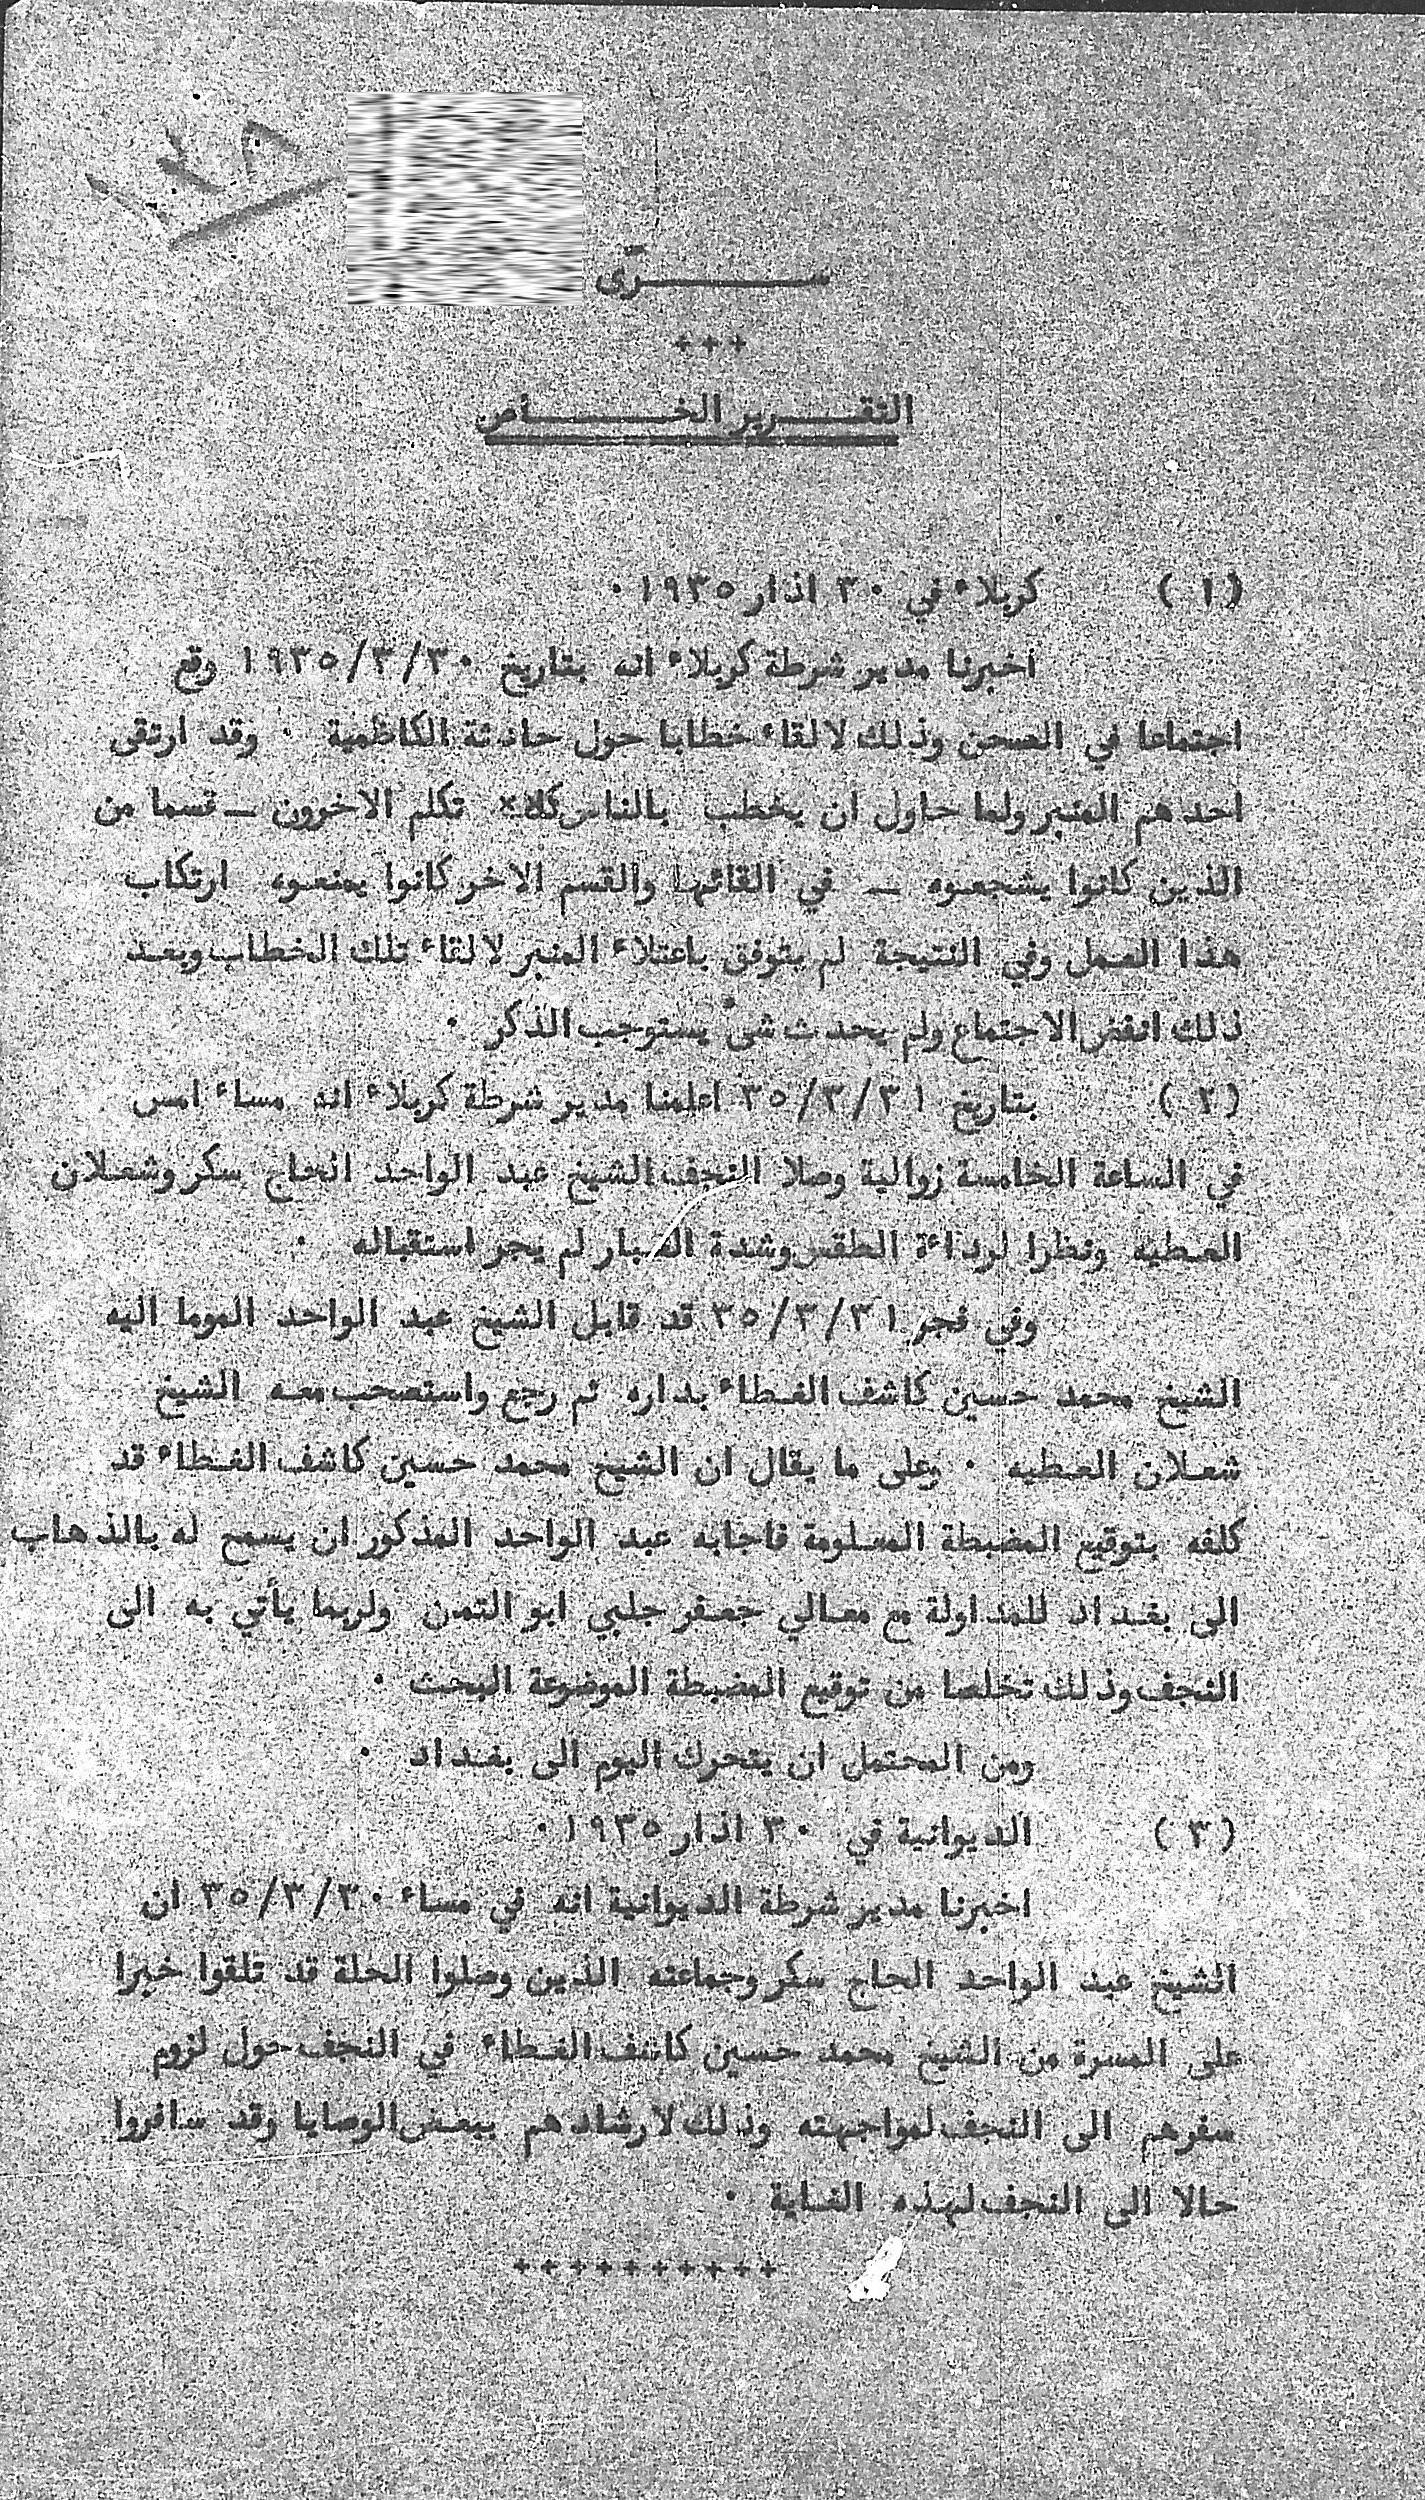 سرّى
+++
التقرير الخاص
(١) كربلاء في ٣٠ اذار ١٩٣٥ ·
اخبرنا مدير شرطة كربلاء انه بتاريخ ١٩٣٥/٣/٣٠ وقع
اجتماعا في الصحن وذلك لالقاء خطابا حول حادثة الكاظمية · وقد ارتقى
احدهم المنبر ولما حاول ان يخطب بالناس تكلم الاخرون ــ قسما من
الذين كانوا يشجعوه ــ في القائها والقسم الاخر كانوا يمنعوه ارتكاب
هذا العمل وفي النتيجة لم يتوفق باعتلاء المنبر لالقاء تلك الخطاب وبعد
ذلك انفض الاجتماع ولم يحدث شىء يستوجب الذكر ·
(٢) بتاريخ ٣٥/٣/٣١ اعلمنا مدير شرطة كربلاء انه مساء امس
في الساعة الخامسة زوالية وصلا النجف الشيخ عبد الواحد الحاج سكر وشعلان
العطيه ونظرا لرداءة الطقس وشدة الغبار لم يجر استقباله ·
وفي فجر ٣٥/٣/٣١ قد قابل الشيخ عبد الواحد الموما اليه
الشيخ محمد حسين كاشف الغطاء بداره ثم رجع واستصحب معه الشيخ
شعلان العطيه · وعلى ما يقال ان الشيخ محمد حسين كاشف الغطاء قد
كلفه بتوقيع المضبطة المعلومة فاجابه عبد الواحد المذكور ان يسمح له بالذهاب
الى بغداد للمداولة مع معالي جعفر جلبي ابو التمن ولربما يأتي به الى
النجف وذلك تخلصا من توقيع المضبطة الموضوعة البحث ·
ومن المحتمل ان يتحرك اليوم الى بغداد ·
(٣) الديوانية في ٣٠ اذار ١٩٣٥ ·
اخبرنا مدير شرطة الديوانية انه في مساء ٣٥/٣/٣٠ ان
الشيخ عبد الواحد الحاج سكر وجماعته الذين وصلوا الحلة قد تلقوا خبرا
على المسرة من الشيخ محمد حسين كاشف الغطاء في النجف حول لزوم
سفرهم الى النجف لمواجهته وذلك لارشادهم ببعض الوصايا وقد سافروا
حالا الى النجف لهذه الغاية ·
++++++++++